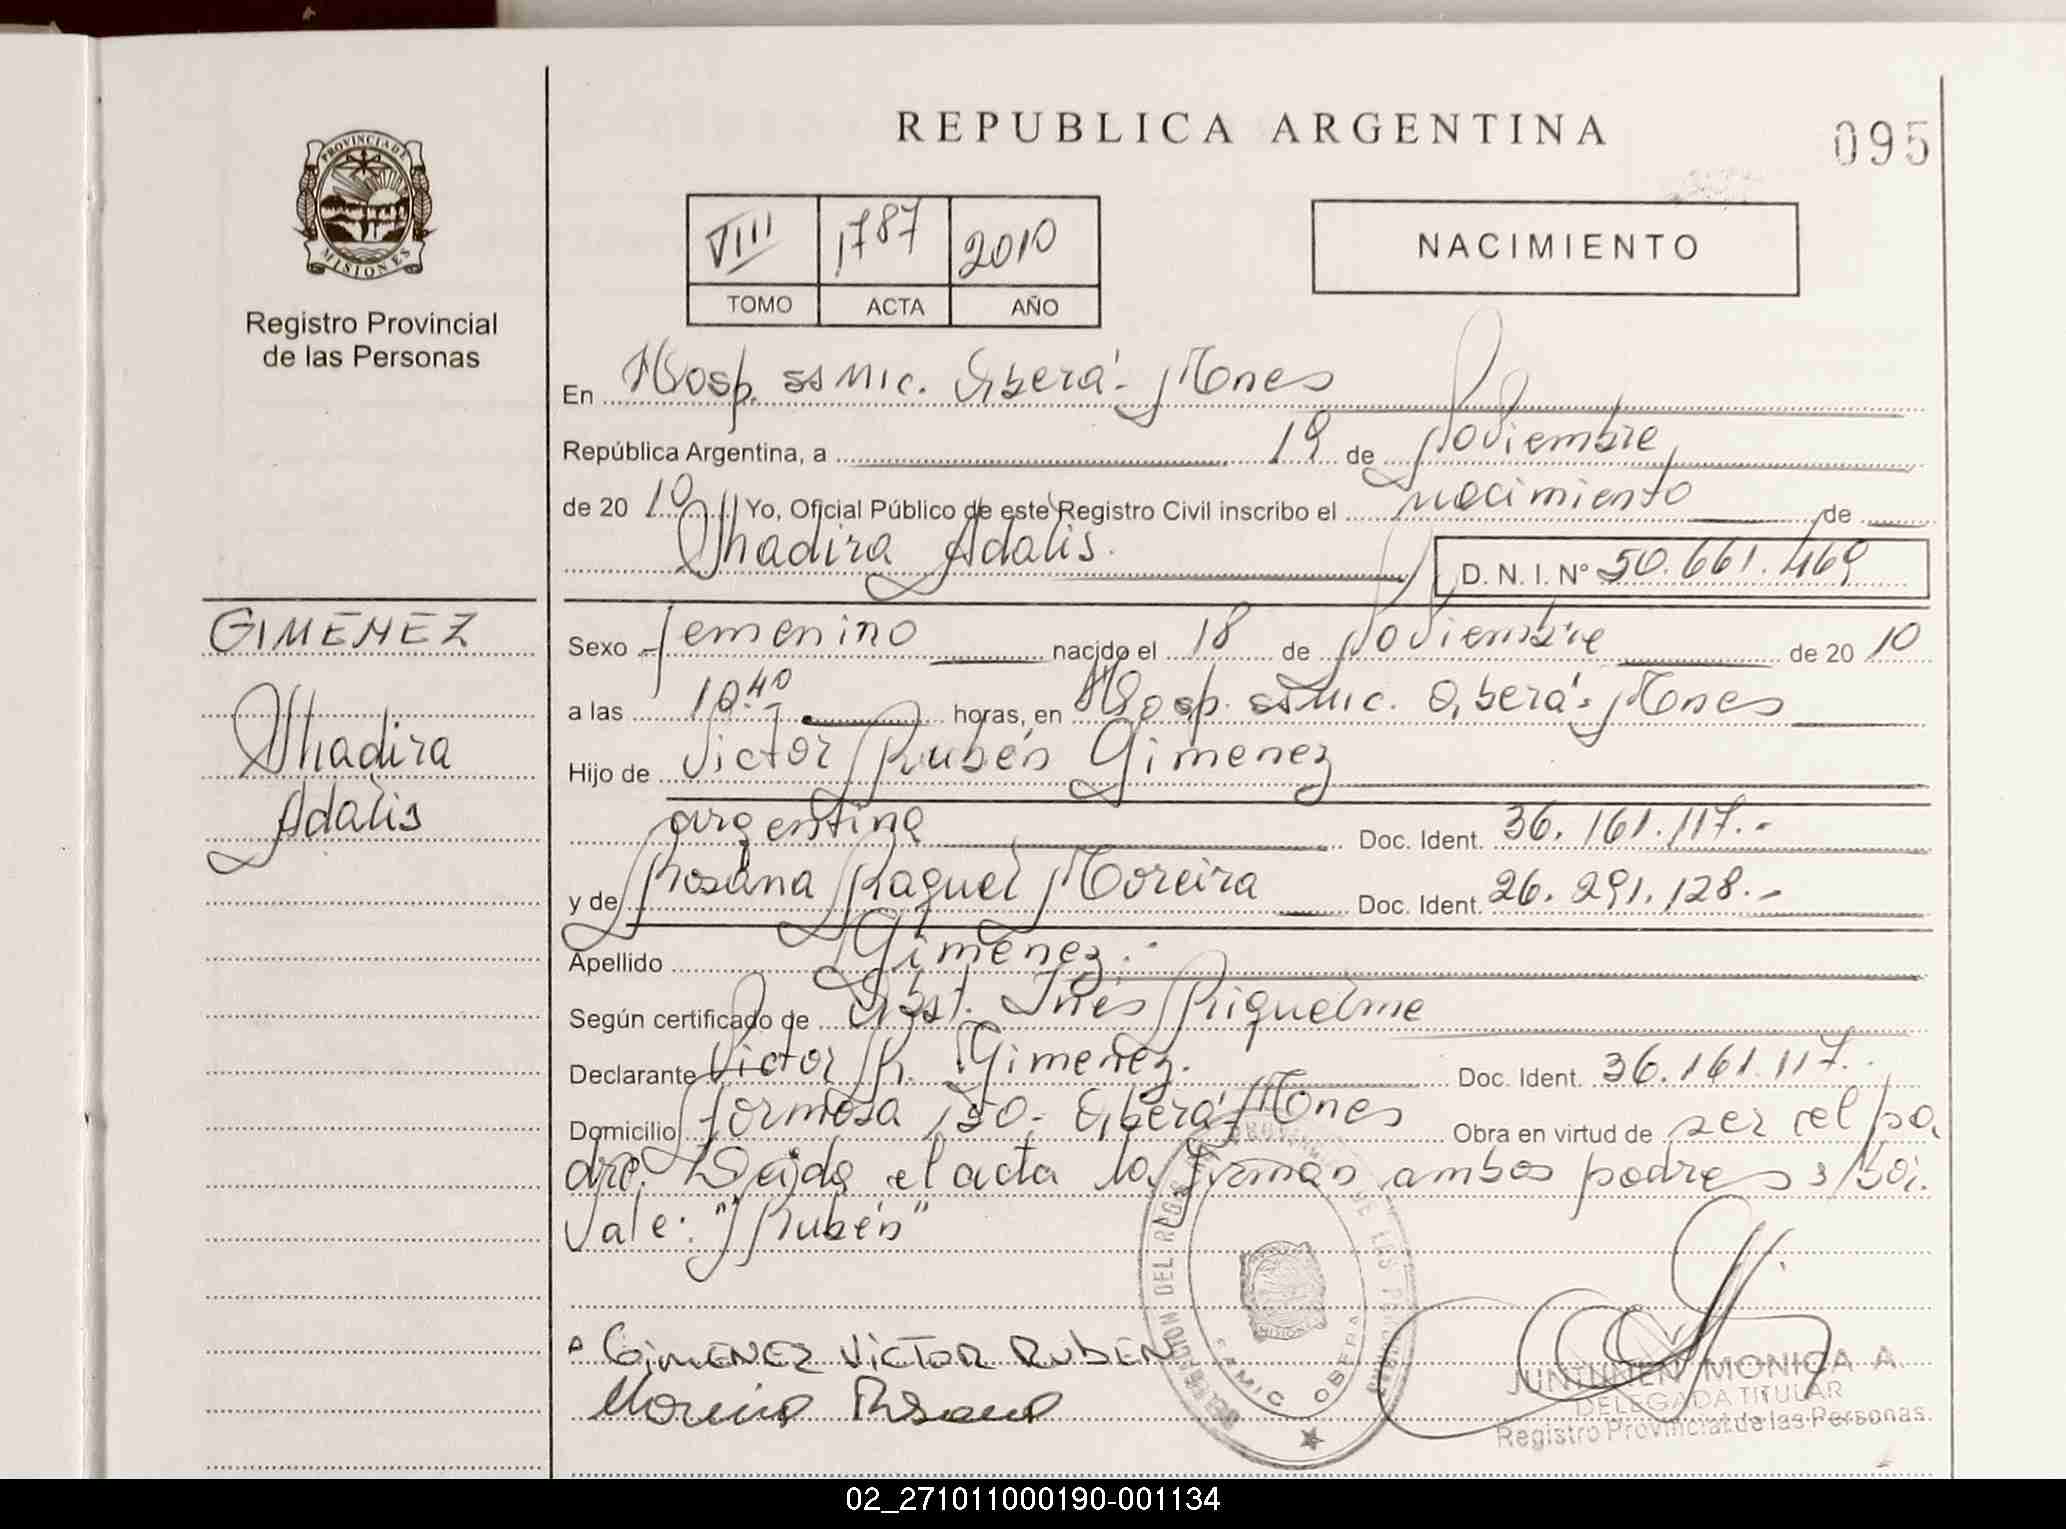 REPUBLICA ARGENTINA
095
PROVINCIA DE
MISIONES
Registro Provincial
de las Personas
VIII 1787 2010
TOMO ACTA AÑO
NACIMIENTO
En Hosp. Oberá- Mones
República Argentina, a 19 de Noviembre
de 20 10 Yo, Oficial Público de este Registro Civil inscribo el nacimiento de
Adalis.
D. N. I. Nº 50.661.469
GIMENEZ
Adalis
Sexo femenino nacido el 18 de Noviembre de 20 10
a las 10.40 horas, en Hosp. Oberá- Mones
Hijo de Victor Rubén Gimenez
argentina Doc. Ident. 36.161.117.-
y de Rosana Raquel Moreira Doc. Ident. 26.291.128.-
Apellido Gimenez.-
Según certificado de Obst. Inés Riquelme
Declarante Victor R. Gimenez. Doc. Ident. 36.161.117.
Domicilio formosa 150- Oberá Mones Obra en virtud de ser el pa
dre. Leida el acta la firman ambos padres
Vale: "Rubén"
GIMENEZ VICTOR RUBEN
DELEGACION DEL REG. PROVINCIAL DE LAS PERSONAS
SAMIC OBERA
MISIONES
JUNTUNEN MONICA A
DELEGADA TITULAR
Registro Provincial de las Personas
02_271011000190-001134